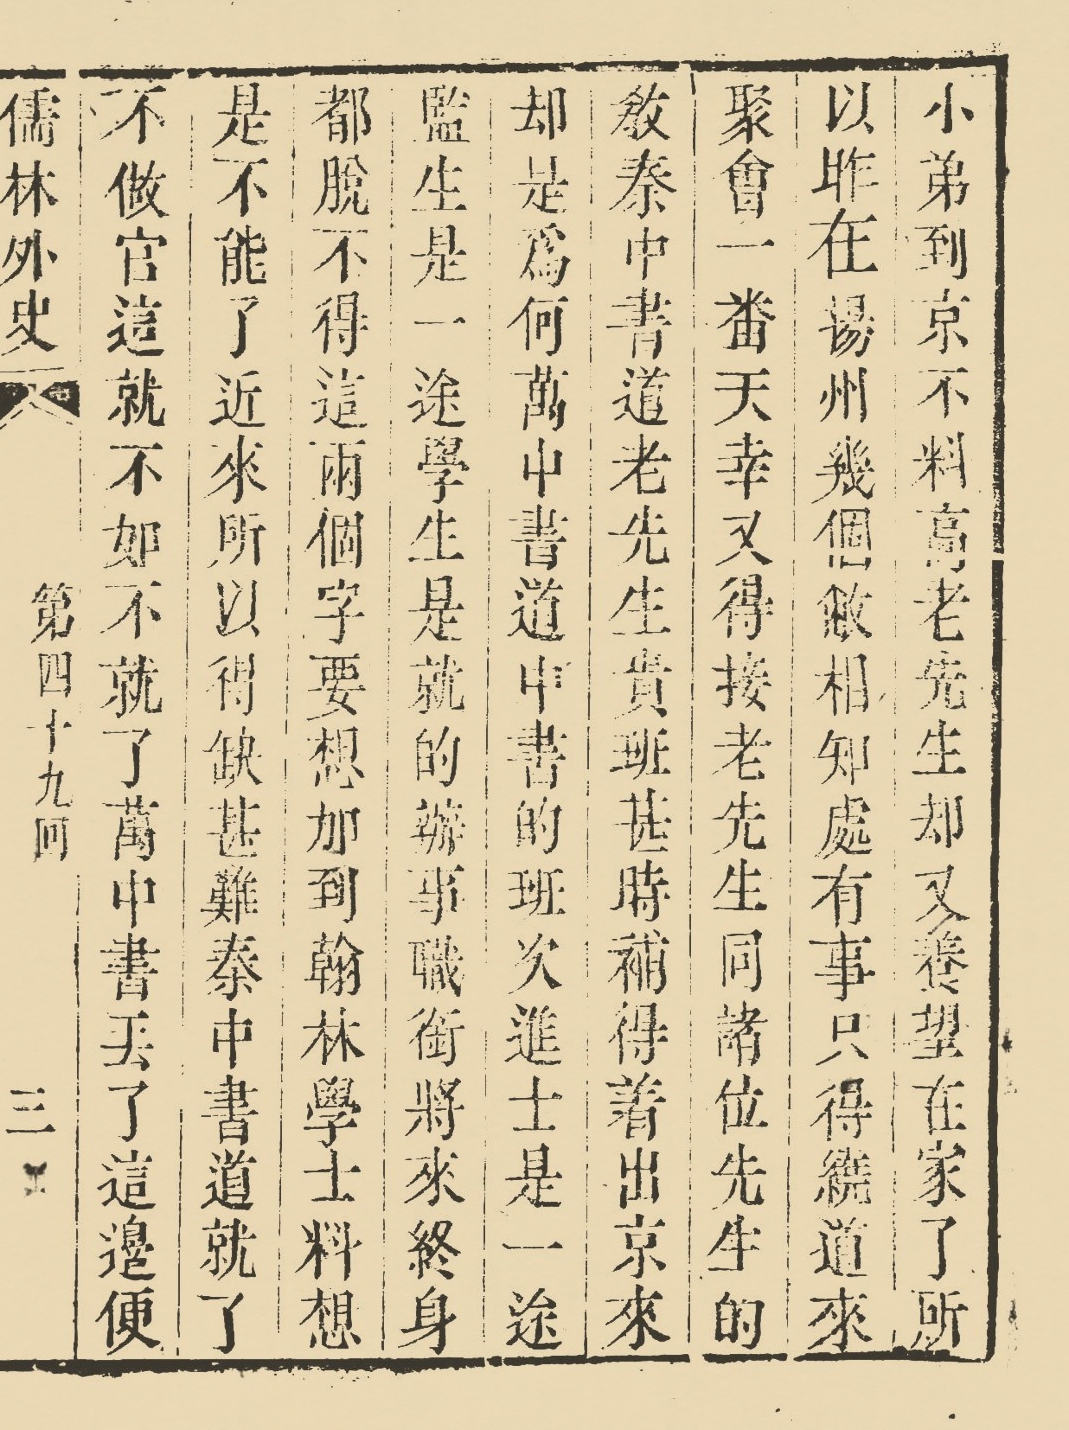 小弟到京不料高老先生却又養望在家了所
以昨在揚州幾個敝相知處有事只得繞道來
聚會一番天幸又得接老先生同諸位先生的
教秦中書道老先生貴班甚時補得着出京來
却是爲何萬中書道中書的班次進士是一途
監生是一途學生是就的辦事職銜將來終身
都脫不得這兩個字要想加到翰林學士料想
是不能了近來所以得缺甚難秦中書道就了
不做官這就不如不就了萬中書丟了這邊便
儒林外史 第四十九回 三